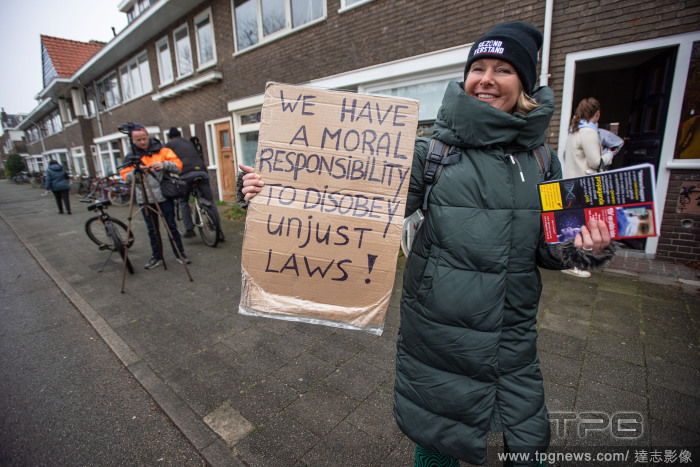 GEZOND
VERSTAND
WE HAVE
A MORAL
RESPONSIBILITY
TO DISOBEY
UNJUST
LAWS!
TPG
www.tpgnews.com / 達志影像